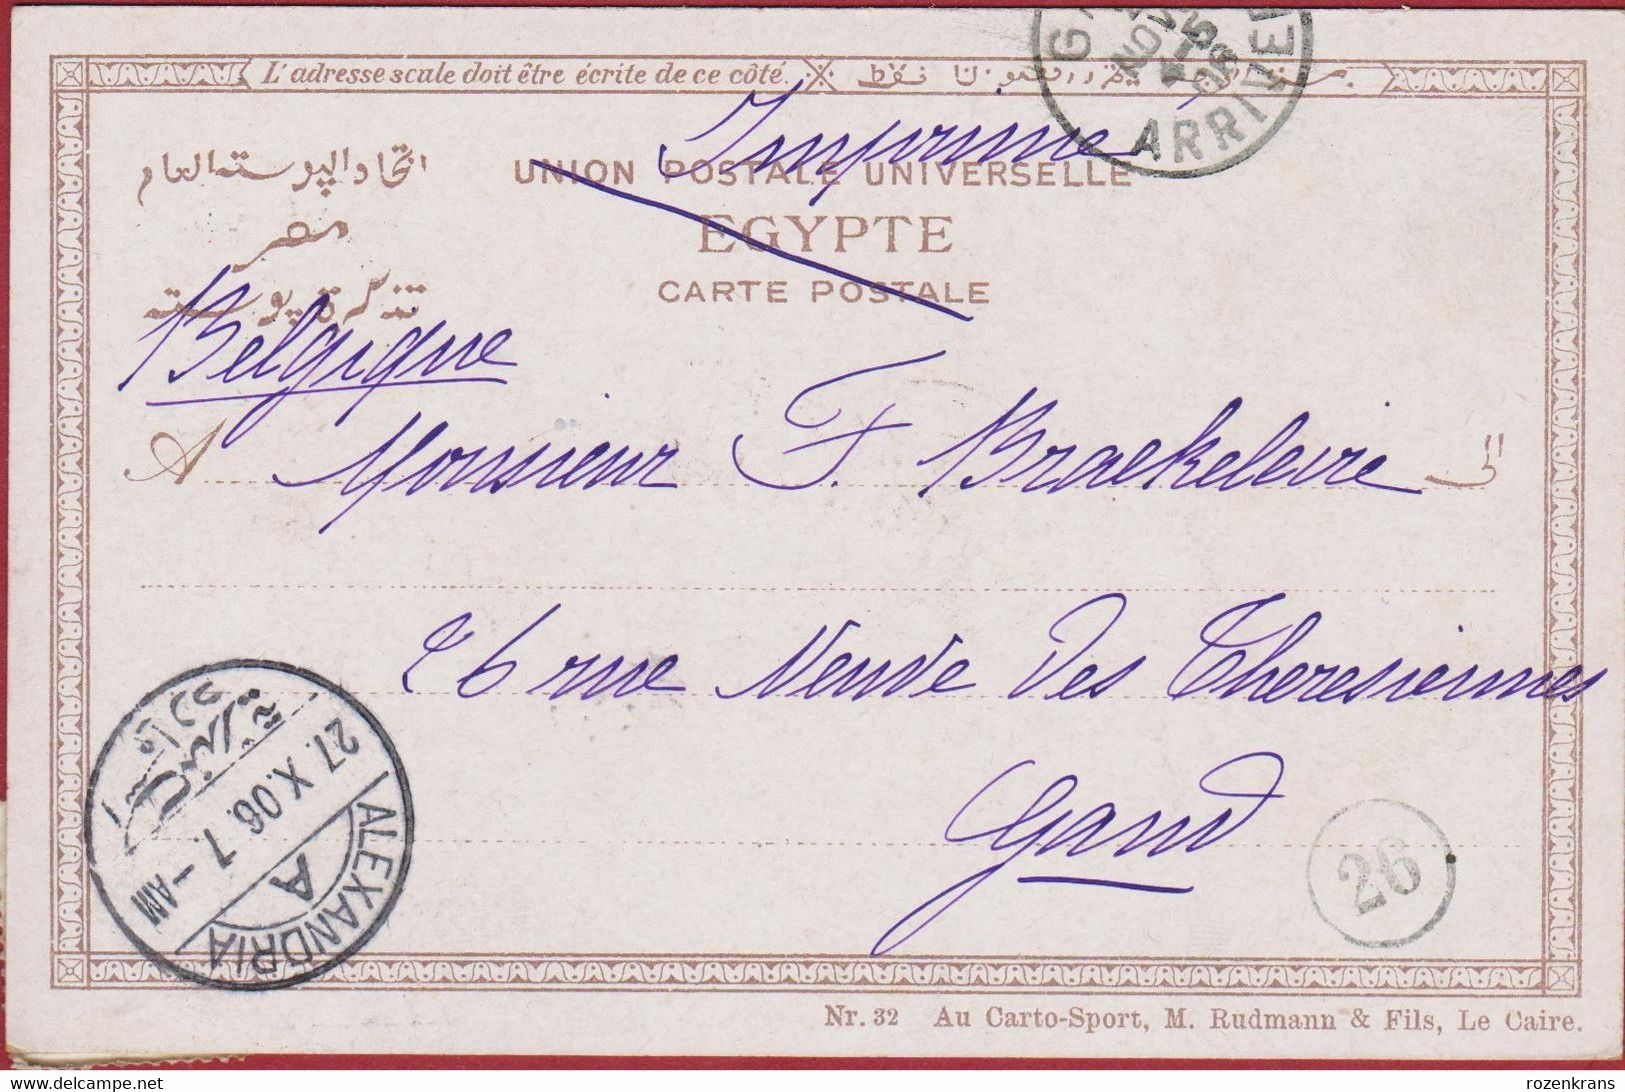 L'adresse seule doit être écrite de ce côté.
NOV 5
ARRIVÉE
Imprimé
اتحاد البوستة العام
UNION POSTALE UNIVERSELLE
مصر
EGYPTE
تذكرة بوستة
CARTE POSTALE
Belgique
A Monsieur F. Braekeleire الى
26 rue Neuve des Theresiennes
Gand
27. X. 06. 7 - AM
ALEXANDRIA
A
26
Nr. 32 Au Carto-Sport, M. Rudmann & Fils, Le Caire.
rozenkrans